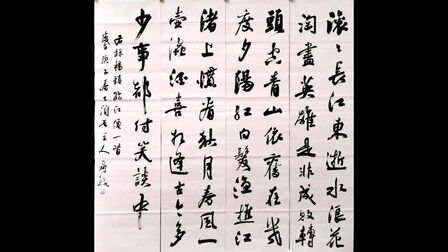 滚〻長江東逝水浪花
淘盡英雄是非成敗轉
頭空青山依舊在幾
度夕陽紅白髮漁樵江
渚上慣看秋月春風一
壺濁酒喜相逢古今多
少事都付笑談中
楊慎臨江僊一首
主人